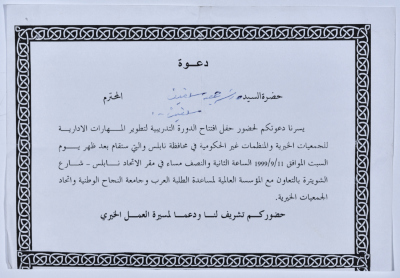 دعوة
حضرة السيدة المحترم
يسرنا دعوتكم لحضور حفل افتتاح الدورة التدريبية لتطوير المهارات الادارية
للجمعيات الخيرية والمنظمات غير الحكومية في محافظة نابلس والتي ستقام بعد ظهر يوم
السبت الموافق 1999/9/11 الساعة الثانية والنصف مساء في مقر الاتحاد نابلس - شارع
الشويترة بالتعاون مع المؤسسة العالمية لمساعدة الطلبة العرب وجامعة النجاح الوطنية واتحاد
الجمعيات الخيرية.
حضوركم تشريف لنا ودعما لمسيرة العمل الخيري